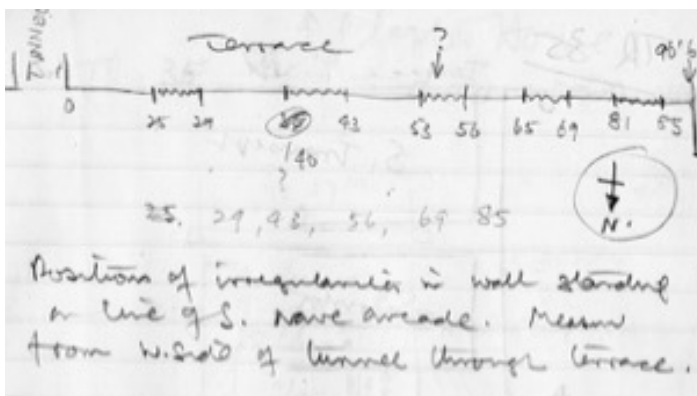 TUNNEL
Terrace
?
96'6
0 25 29 43 53 56 65 69 81 85
40
?
25. 29, 43, 56, 69 85
N.
Positions of irregularities in wall standing
on line of S. nave arcade. Measured
from W. side of tunnel through terrace.